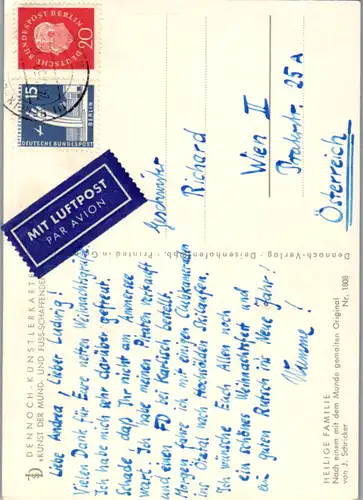 DEUTSCHE BUNDESPOST BERLIN
20
15
BERLIN
DEUTSCHE BUNDESPOST
MIT LUFTPOST
PAR AVION
DENNOCH-KÜNSTLERKARTE
KUNST DER MUND- UND FUSS-SCHAFFENDEN
Liebe Andrea! Lieber Ludwig!
Vielen Dank für Eure netten Weihnachtsgrüße.
Ich habe mich sehr darüber gefreut.
Schade daß Ihr nicht am Ammersee
wart. Ich habe meinen Piraten verkauft
und einen FD bei bestellt.
Morgen fahre ich mit einigen Clubkameraden
ins Ötztal nach Hochsölden Skilaufen.
Ich wünsche Euch Allen noch
ein schönes Weihnachtsfest und
ein guten Rutsch ins Neue Jahr!
Dennoch-Verlag · Deisenhofen · Printed in
Geschwister
Richard
Wien II
25A
Österreich
HEILIGE FAMILIE
Nr. 1808
Nach einem mit dem Munde gemalten Original
von J. Schricker